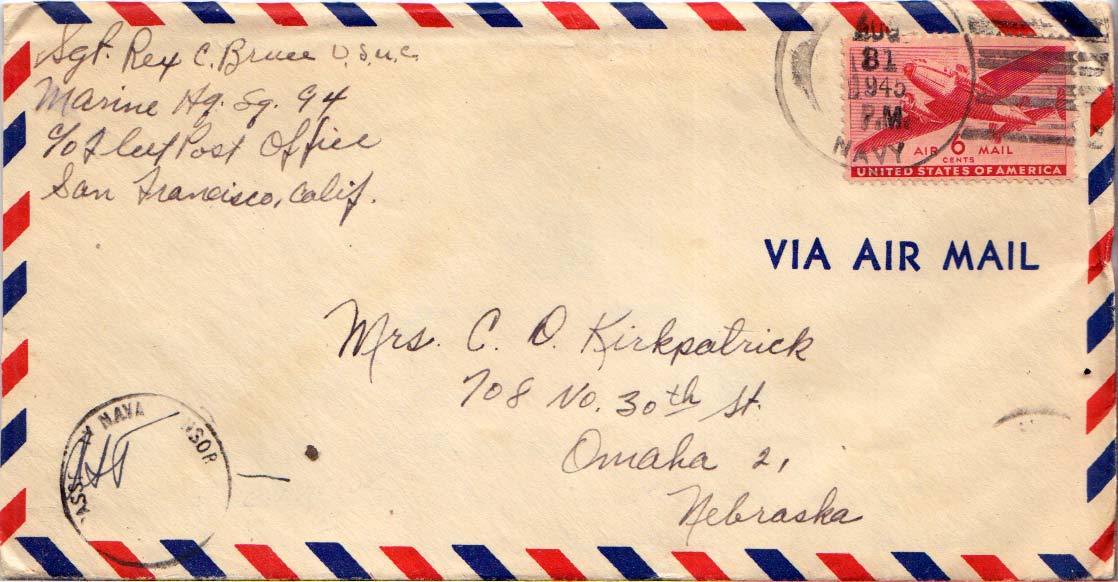 Sgt. Rex C. Bruce U.S.M.C.
Marine Hq. Sq. 94
c/o Fleet Post Office
San Francisco, Calif.
AUG
31
1945
P.M.
NAVY
AIR 6 MAIL
CENTS
UNITED STATES OF AMERICA
VIA AIR MAIL
Mrs. C. O. Kirkpatrick
708 No. 30th St.
Omaha 2,
Nebraska
PASSED BY NAVA NSOR